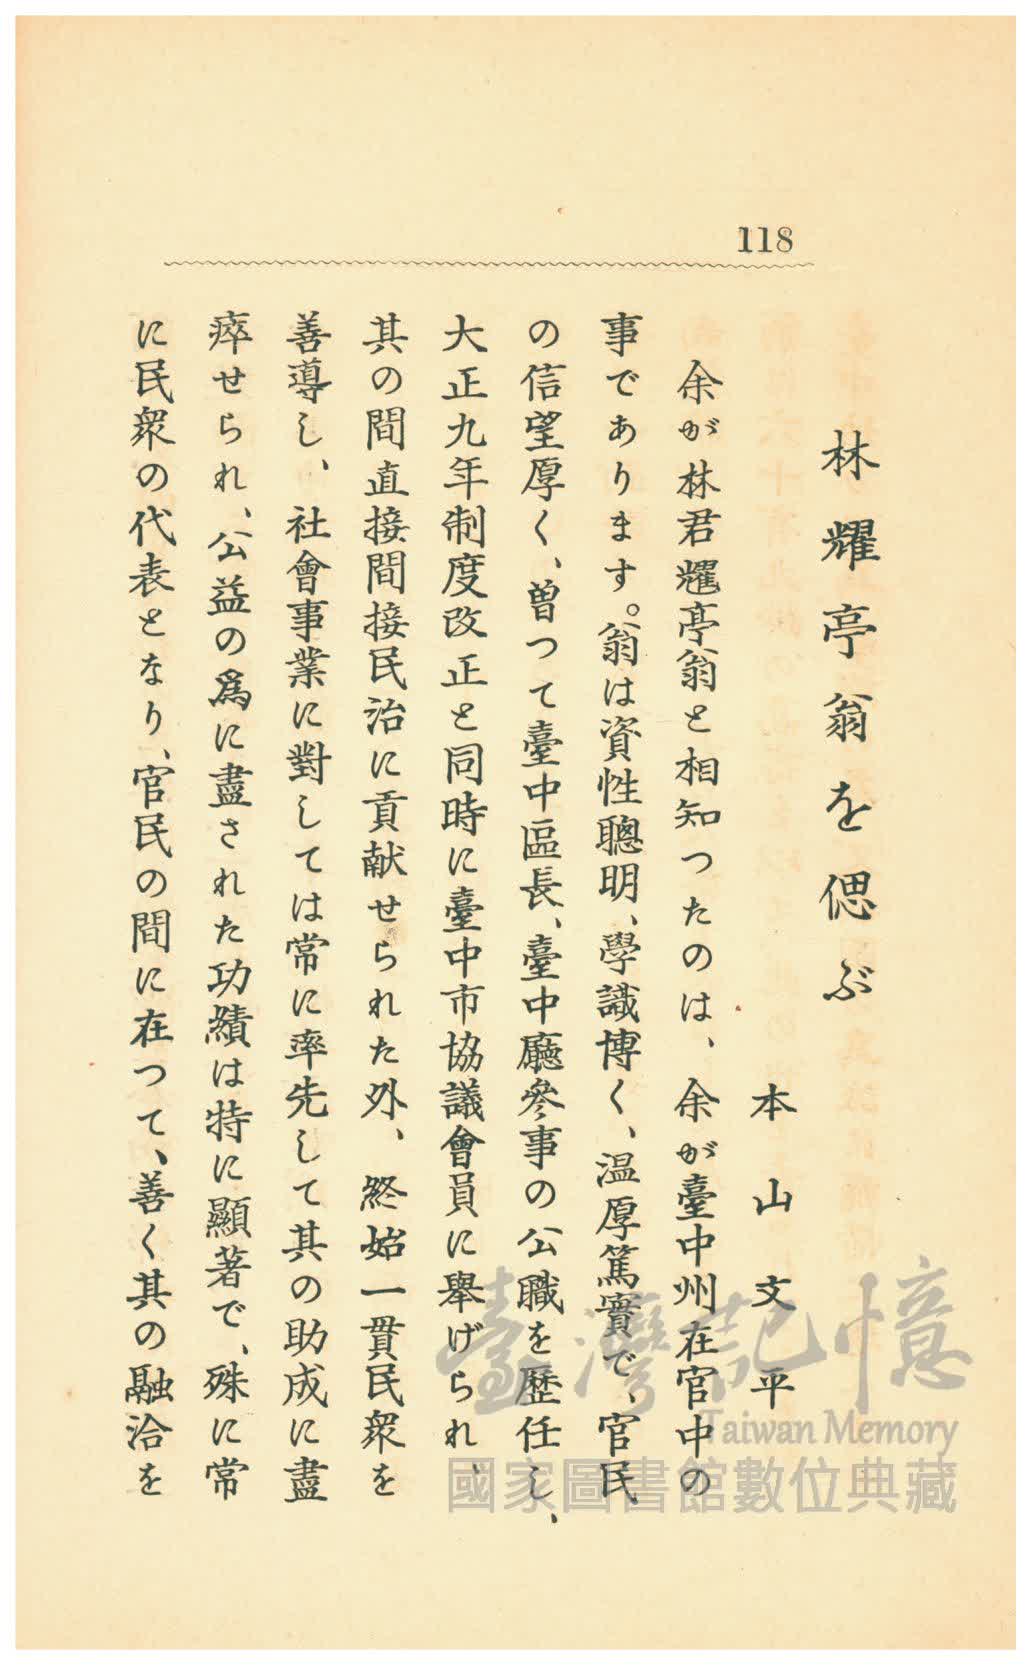 118
林耀亭翁を偲ぶ
本山文平
余が林君耀亭翁と相知つたのは、余が臺中州在官中の
事であります。翁は資性聰明、學識博く、温厚篤實で、官民
の信望厚く、曽つて臺中區長、臺中廳參事の公職を歴任し、
大正九年制度改正と同時に臺中市協議會員に舉げられ、
其の間直接間接民治に貢献せられた外、終始一貫民衆を
善導し、社會事業に對しては常に率先して其の助成に盡
瘁せられ、公益の爲に盡された功績は特に顯著で、殊に常
に民衆の代表となり、官民の間に在つて、善く其の融洽を
臺灣記憶
Taiwan Memory
國家圖書館數位典藏